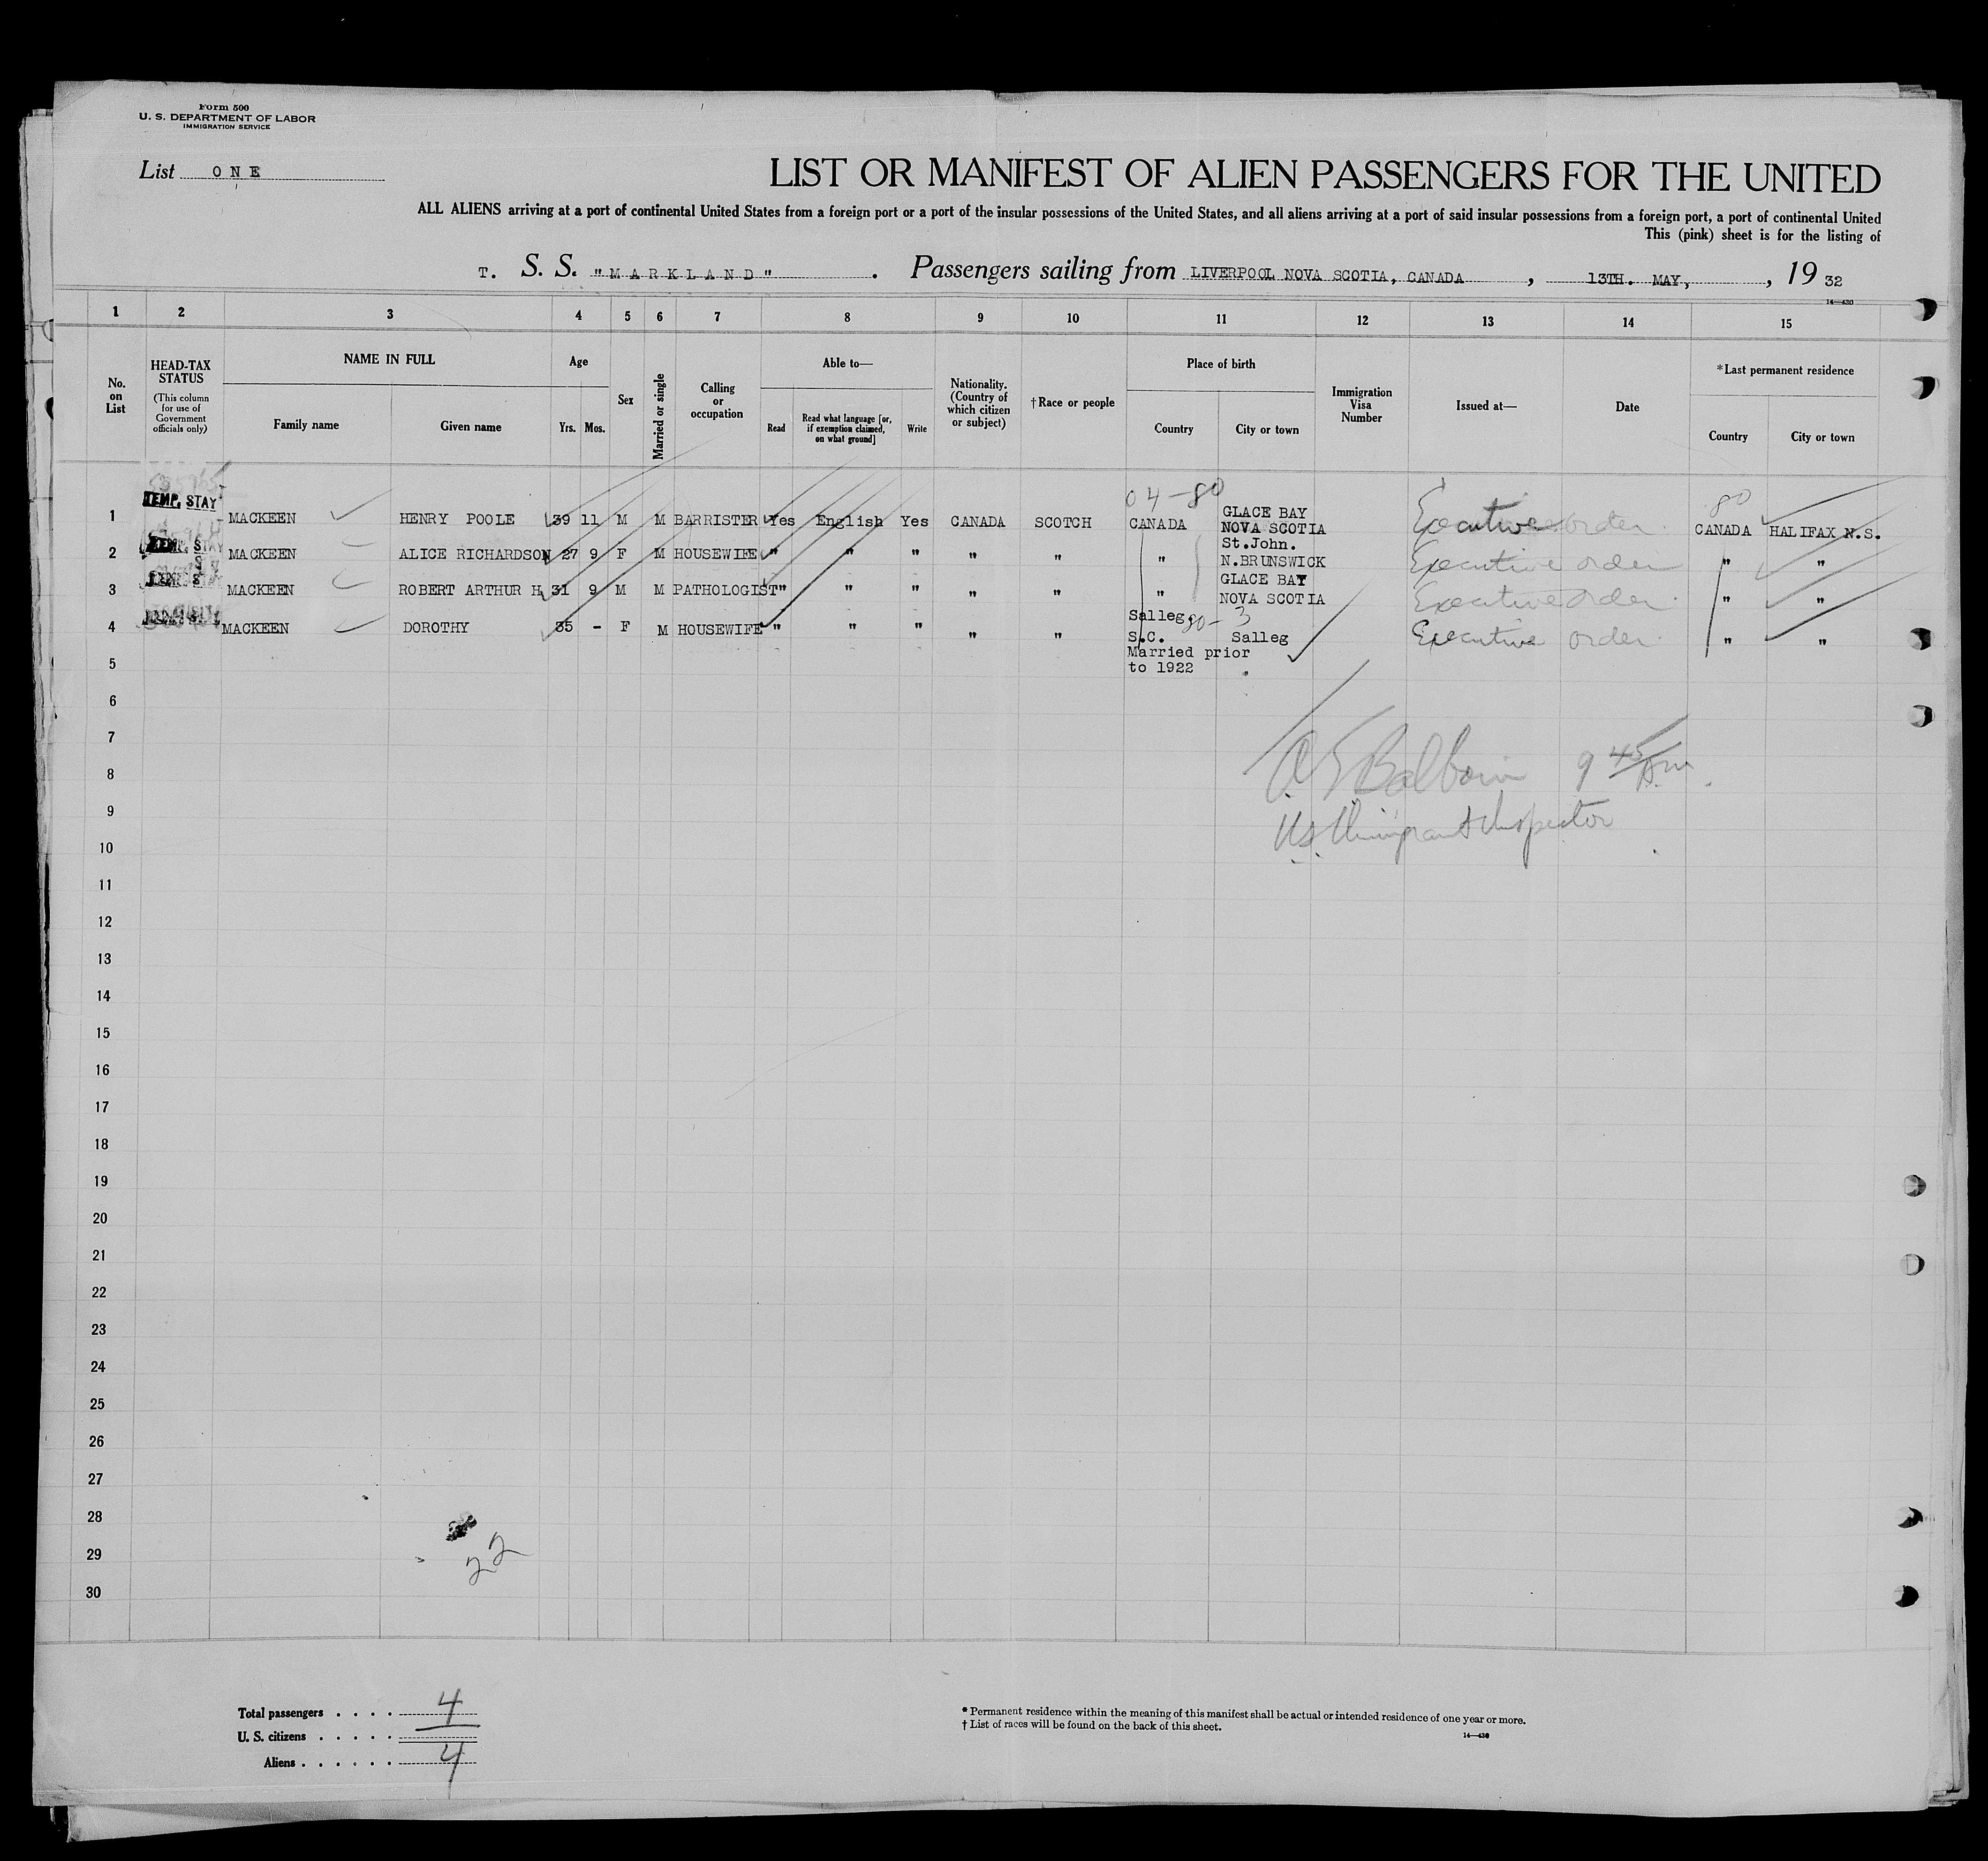 Form 500
U. S. DEPARTMENT OF LABOR
IMMIGRATION SERVICE
List ONE
LIST OR MANIFEST OF ALIEN PASSENGERS FOR THE UNITED
ALL ALIENS arriving at a port of continental United States from a foreign port or a port of the insular possessions of the United States, and all aliens arriving at a port of said insular possessions from a foreign port, a port of continental United
This (pink) sheet is for the listing of
T. S. S. "MARKLAND" . Passengers sailing from LIVERPOOL NOVA SCOTIA, CANADA , 13TH. MAY, , 19 32
14—430
1 2 3 4 5 6 7 8 9 10 11 12 13 14 15
No. on List
HEAD-TAX STATUS
(This column for use of Government officials only)
NAME IN FULL
Family name
Given name
Age
Yrs. Mos.
Sex
Married or single
Calling or occupation
Able to—
Read
Read what language [or, if exemption claimed, on what ground]
Write
Nationality. (Country of which citizen or subject)
†Race or people
Place of birth
Country
City or town
Immigration Visa Number
Issued at—
Date
*Last permanent residence
Country
City or town
04-80
80
1 TEMP. STAY MACKEEN HENRY POOLE 39 11 M M BARRISTER Yes English Yes CANADA SCOTCH CANADA GLACE BAY NOVA SCOTIA Executive order CANADA HALIFAX N.S.
2 MACKEEN ALICE RICHARDSON 27 9 F M HOUSEWIFE " " " " " " St.John. N.BRUNSWICK Executive order " "
3 MACKEEN ROBERT ARTHUR H 31 9 M M PATHOLOGIST " " " " " " GLACE BAY NOVA SCOTIA Executive order " "
4 MACKEEN DOROTHY 35 - F M HOUSEWIFE " " " " " Salleg. S.C. 80-3 Salleg Executive order " "
Married prior
to 1922
5
6
7
8
9
10
11
12
13
14
15
16
17
18
19
20
21
22
23
24
25
26
27
28
29
30
Baldwin 9 45 Am
US Immigrant Inspector
22
Total passengers . . . . 4
U. S. citizens . . . . .
Aliens . . . . . . 4
* Permanent residence within the meaning of this manifest shall be actual or intended residence of one year or more.
† List of races will be found on the back of this sheet.
14—430